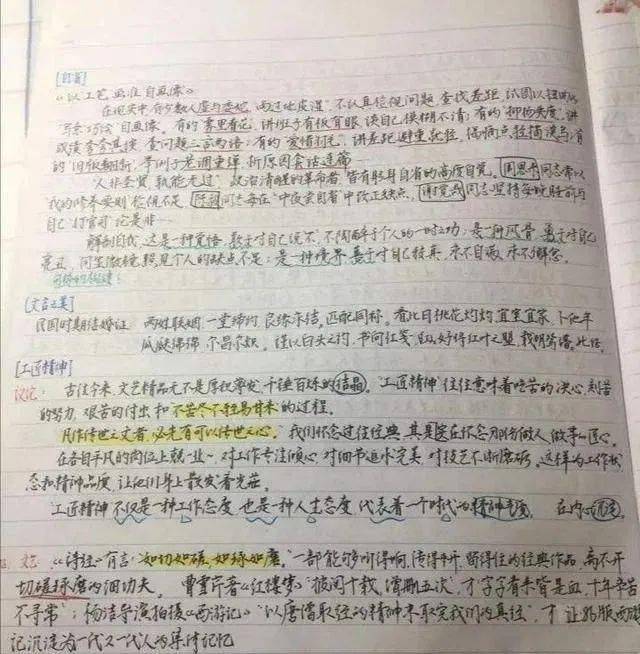 [自省]
《以工笔画准自画像》
在现实中，有少数人虚与委蛇，雨过地皮湿，不认真检视问题、查找差距，试图以扭曲的
"写意巧绘"自画像。有的"雾里看花"，讲班子有板有眼，谈自己模糊不清；有的"柳杨失度"，讲
成绩 查问题三言两语；有的"爱惜羽毛"，讲差距避重就轻，偏倚点轻描淡写；有
的"旧版翻新"，举例子老调重弹，析原因套话连篇
"人非圣贤，孰能无过"政治清醒的革命者，皆有躬身自省的高度自觉。周恩来同志常以
"我的修养要则"检视不足，陈毅同志每在"中夜尝自省"中改正缺点，谢觉哉同志坚持每晚睡前与
自己"打官司"论是非…
解剖自我，这是一种觉悟，敢于对自己说不，不陶醉于个人的一时之功；是一种风骨，勇于对自己
亮丑，问出症结，照见个人的缺点不足；是一种境界，善于对自己较真，永不自满，永不懈怠。
[文言之美]
民国时期结婚证 两姓联姻，一堂缔约，良缘永结，匹配同称。看此日桃花灼灼，宜室宜家，卜他年
瓜瓞绵绵，尔昌尔炽。谨以白头之约，书向红笺，好将红叶之盟，载明鸳谱。此证。
[工匠精神]
议论： 古往今来，文艺精品无不是厚积薄发、千锤百炼的结晶。"工匠精神"往往意味着吃苦的决心，刻苦
的努力，艰苦的付出和不苦尽不轻易甘来的过程。
"凡作传世之文者，必先有可以传世之心。"我们怀念过往经典，其实是在怀念那份做人、做事の匠心。
在各自平凡的岗位上兢业~对工作专注倾心，对细节追求完美，对技艺不断磨砺。这样的工作状
态和精神品质，让他们身上散发着光芒。
"工匠精神"不仅是一种工作态度，也是一种人生态度，代表着一个时代的精神气质。 在内心沉淀。
文艺 《诗经》有言："如切如磋，如琢如磨。"一部能够叫得响、传得开、留得住的经典作品，离不开
切磋琢磨的细功夫。 曹雪芹著《红楼梦》"披阅十载，增删五次"，才"字字看来皆是血，十年辛苦
不寻常"；杨洁导演拍摄《西游记》"以唐僧取经的精神来取完我们的真经"，才让86版西游
记沉淀为一代又一代人的集体记忆